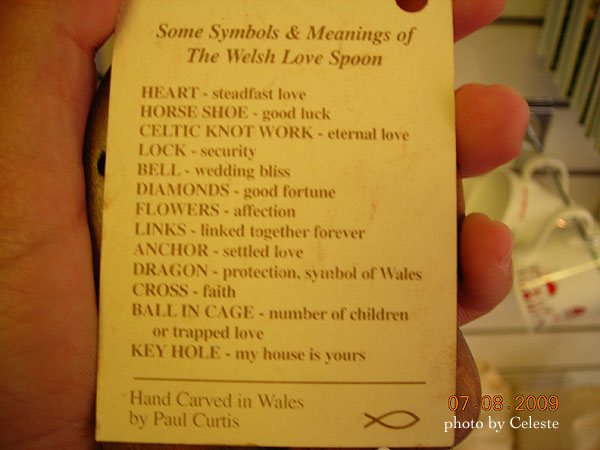 Some Symbols & Meanings of
The Welsh Love Spoon
HEART - steadfast love
HORSE SHOE - good luck
CELTIC KNOT WORK - eternal love
LOCK - security
BELL - wedding bliss
DIAMONDS - good fortune
FLOWERS - affection
LINKS - linked together forever
ANCHOR - settled love
DRAGON - protection, symbol of Wales
CROSS - faith
BALL IN CAGE - number of children
or trapped love
KEY HOLE - my house is yours
Hand Carved in Wales
by Paul Curtis
07.08.2009
photo by Celeste